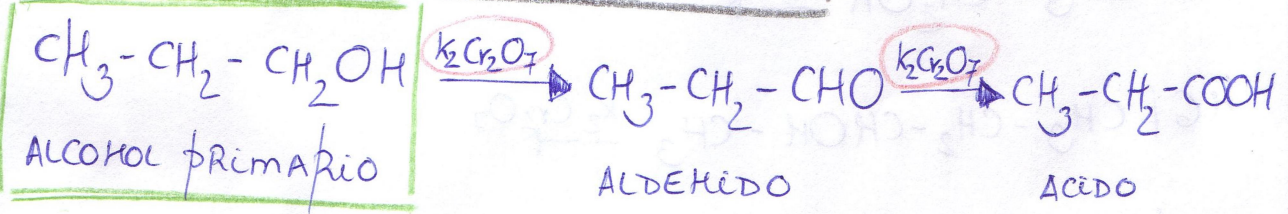 CH₃-CH₂-CH₂OH K₂Cr₂O₇ CH₃-CH₂-CHO K₂Cr₂O₇ CH₃-CH₂-COOH
ALCOHOL PRIMARIO ALDEHIDO ACIDO